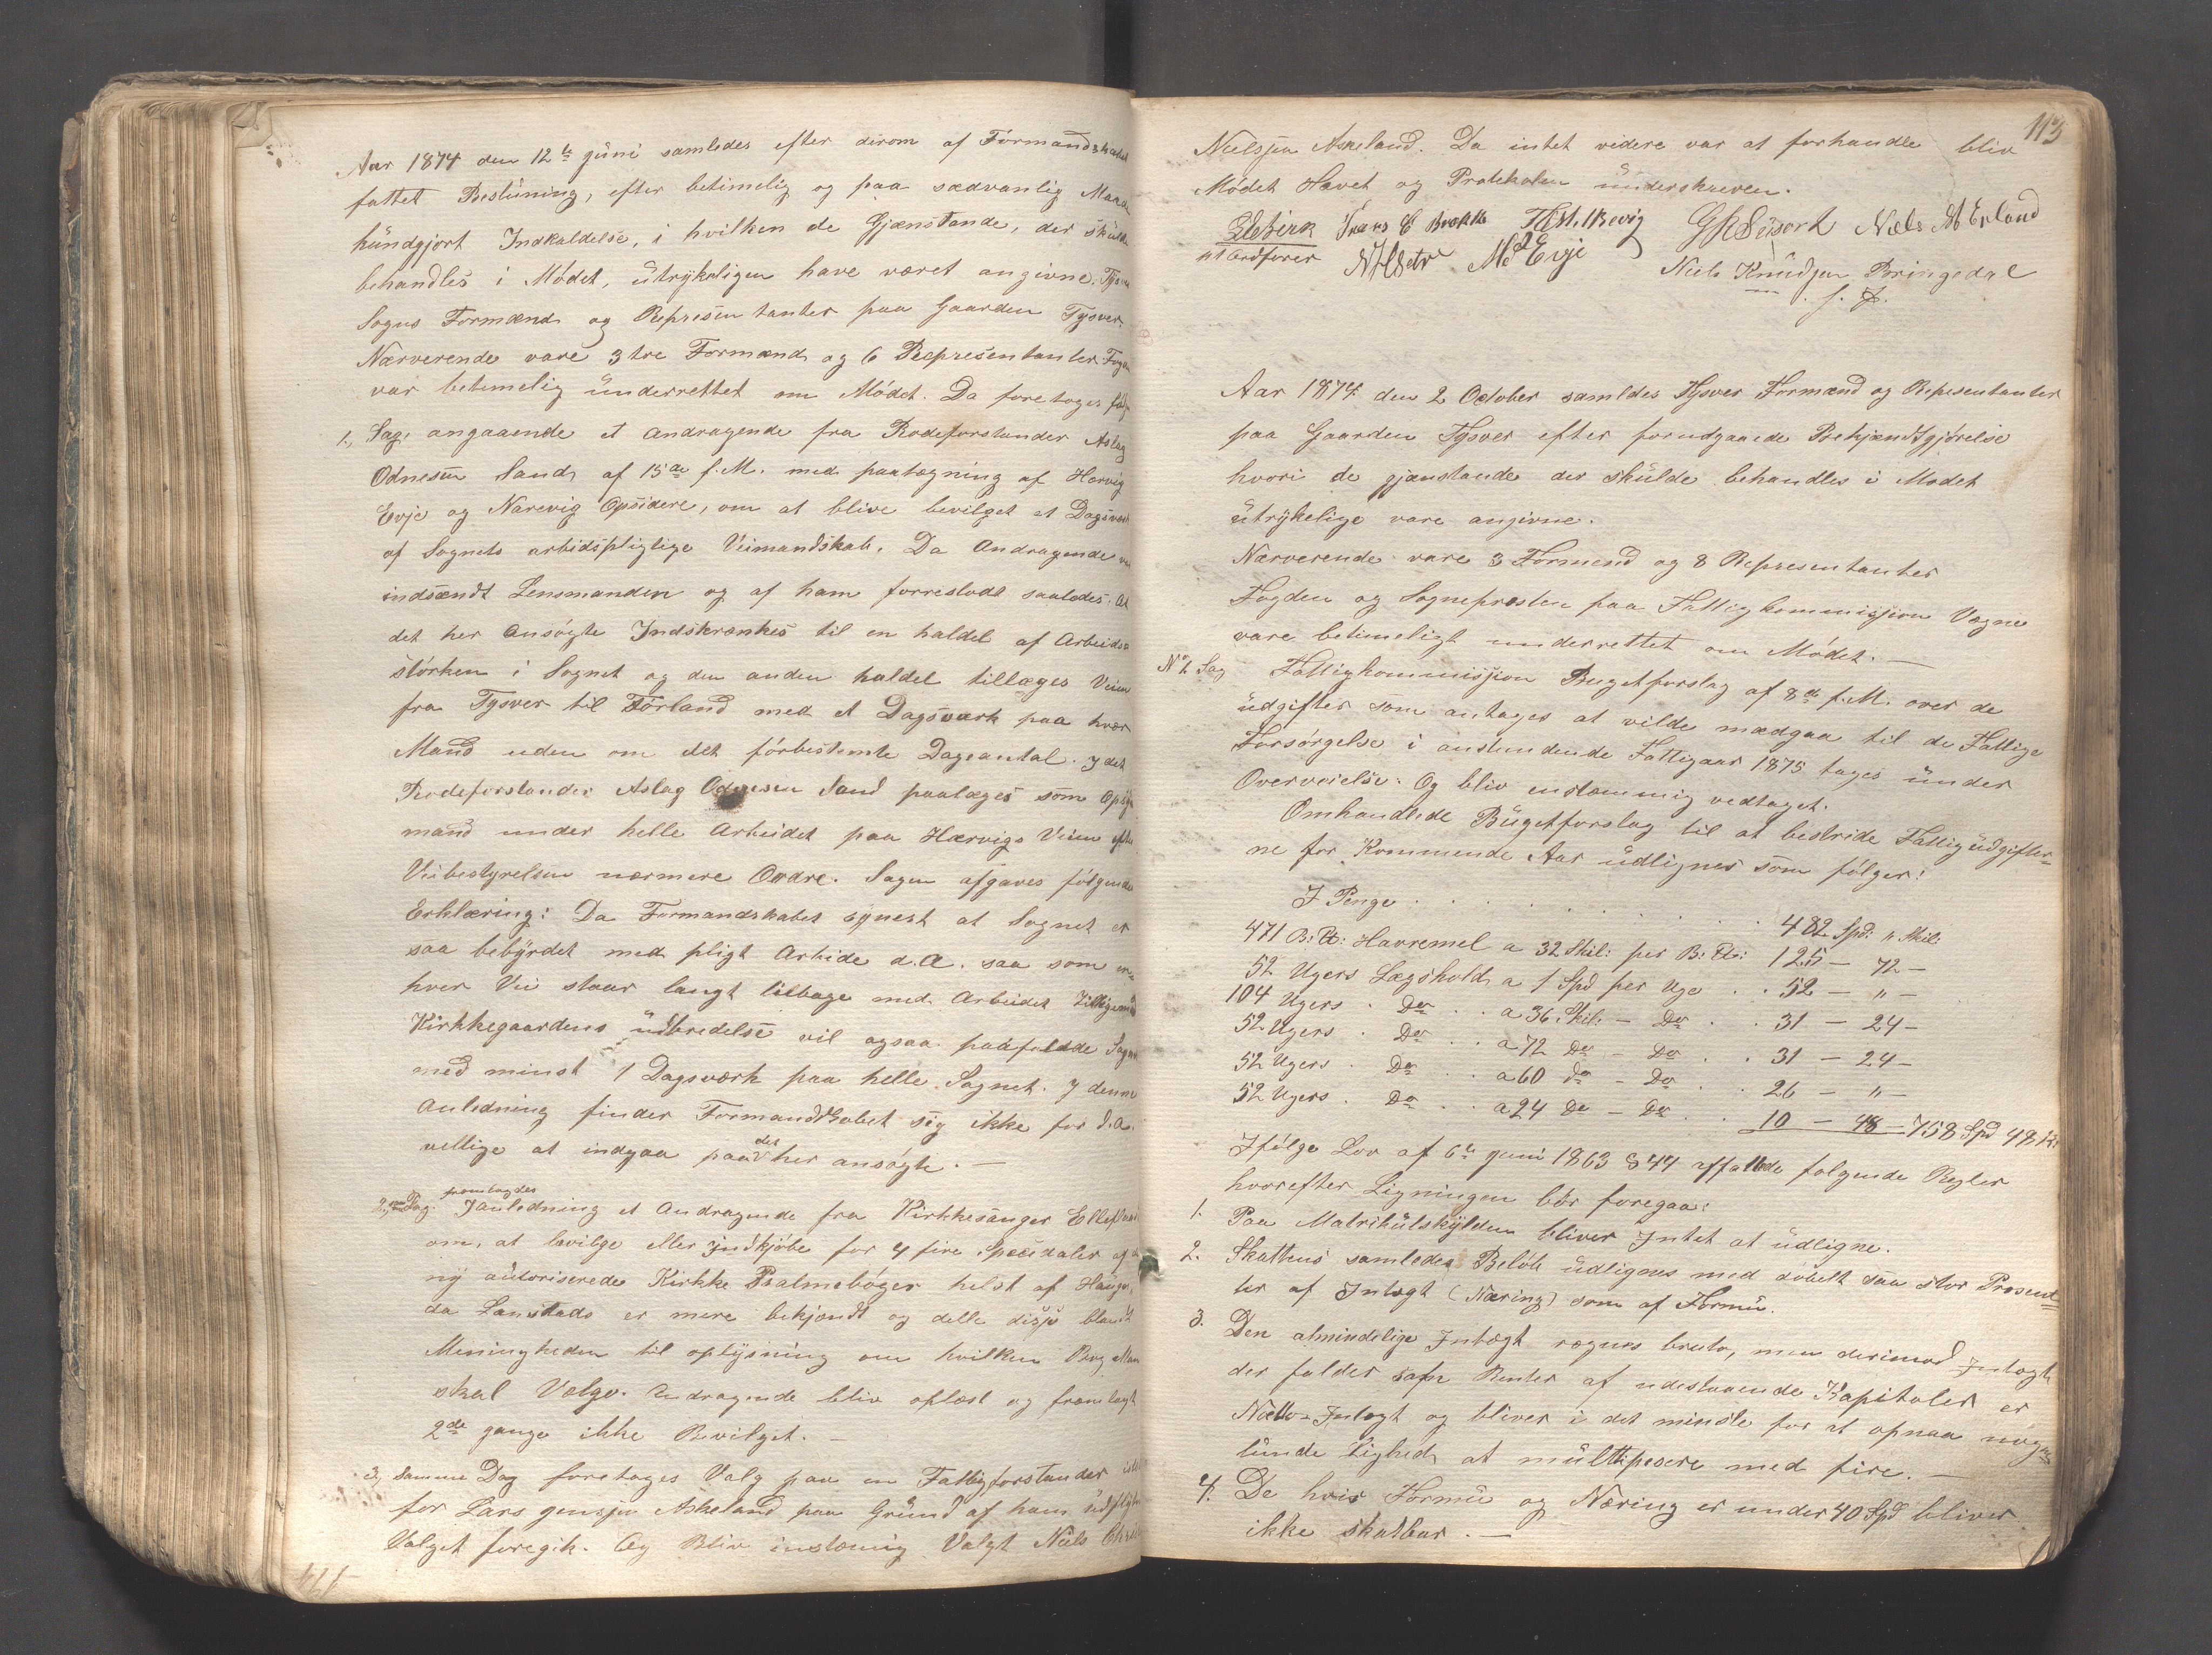 Aar 1874 den 12te Juni samledes efter derom af Formandskabet
fattet Beslüning, efter betimelig og paa sædvanlig Maade
kündgjort Indkaldelse, i hvilken de Gjænstande, der skulde
behandles i Mødet, ütrykeligen have været angivne. Tysvær
Sogns Formænd og Represün tanter paa Gaarden Tysver.
Nærverende vare 3 tre Formænd og 6 Representanter. Fogden
var betimelig ünderrettet om Mødet. Da foretoges føl
1., Sag, angaaende et andragende fra Rodeforstander Aslag
Odnesen Sand af 15de f. M. med paategning af Hervig
Evje og Narevig Opsidere, om at blive bevilget et Dagsværk
af Sognets arbidspligtige Veimandskab. Da Andragende var
indsændt Lensmanden og af ham forreslodt saaledes: At
det her ansøgte Indskrænkes til en haldel af Arbeids-
stórken i Sognet og den anden haldel tillæges Veien
fra Tysver til Førland med et Dagsværk paa hver
Mand uden om det förbestemte Dageantal. I det
Rodeforstander Aslag Odnesen Sand paalæges som Opsÿns
mand under helle Arbeidet paa Hærvigs Veien efter
Veibestyrelsen nærmere Ordre. Sagen afgaves følgende
Erklæring: Da Formandskabet synest at Sognet er
saa bebyrdet med pligt Arbide d.A. saa som en
hver Vei staar langt tilbage med Arbeidet Tilligemed
Kirkkegaardens üdbredelse vil ogsaa paafaldde Sognet
med minst 1 Dagsværk paa helle Sognet. I denne
Anledning finder Formandskabet sig ikke for d.A.
vellige at indgaa paa det her ansøgte. —
2den Sag. framlagdes I anledning et Andragende fra Kirkkesanger Ellef
om, at bevilge eller Jndkjøbe for 4 fire Specidaler af
ny aütoriserede Kirkke Psalmebøger helst af Hauges,
da Lanstads er mere bekjendt og delle disse blandt
Meningheden til oplysning om hvilken Bog Man
skal Vælge. Andragende bliv oplæst og framlagt
2de gange ikke Bevilget. —
3, samme Dag foretoges Valg paa en Fattigforstander istedet
for Lars Jensen Askeland paa Gründ af ham üdflytn
Valget foregik. Og Bliv instæmig Valgt Niels
113
Nielsjen Askeland. Da intet videre var at forhandle bliv
Mødet Hævet og Protekolen ünderskreven.
Niels A Erland
M Evje
Niels Knudsen Boringedal
Aar 1874 den 2 October samldes Tysver Formænd og Representanter
paa Gaarden Tysver efter forudgaaede Bekjændtgjørelse
hvori de gjænstande der skülde behandles i Mødet
ütrykelige vare angivne.
Nærverende vare 3 Formend og 8 Representanter
Fogden og Sognepresten paa Fattigkommissjion Vægne
vare betimeligt underrettet om Mødet. —
No 1. Sag Fattigkommissjion Bugetforslag af 8de f. M. over de
üdgifter som antages at vilde mædgaa til de Fattige
Forsørgelse i anstundende Fattigaar 1875 tages ünder
Overveielse. Og bliv enstæmmig vedtaget.
Omhandlede Bügetforslag til at bestride Fattigüdgifter-
ne for Kommende Aar üdlignes som følger:
I Penge . . . . . . . . . 482 Spd: " Skil:
471 B: ℔: Havremel a 32 Skil: per B: ℔: 125 — 72 —
52 Ugers Lægshold a 1 Spd per Uge . . 52 — " —
104 Ugers . Do . . a 36 Skil. — Do . . 31 — 24 —
52 Ugers . Do . . a 72 Do — Do . . 31 — 24 —
52 Ugers . Do . . a 60 Do — Do . . 26 — " —
52 Ugers . Do . . a 24 Do — Do . . 10 — 48 — 758 Spd 48 s:
Ifølge Lov af 6te Juni 1863 § 44 affattede følgende Regler
hvorefter Ligningen bör foregaa:
1. Paa Matrikülskylden bliver Intet at üdligne.
2. Skattens samledes Beløb üdlignes med dobelt saa stor Prosent-
ter af Intægt (Næring) som af Formü.
3. Den almindelige Intægt regnes bruto, men derimod Intægt
der falder som Renter af udestaaende Kapitaler er
Nætto-Intægt og bliver i det minste for at opnaa nogen-
lunde Lighed at mültiplsere med fire. —
4. De hvis Formü og Næring er under 40 Spd bliver
ikke skatbar. —